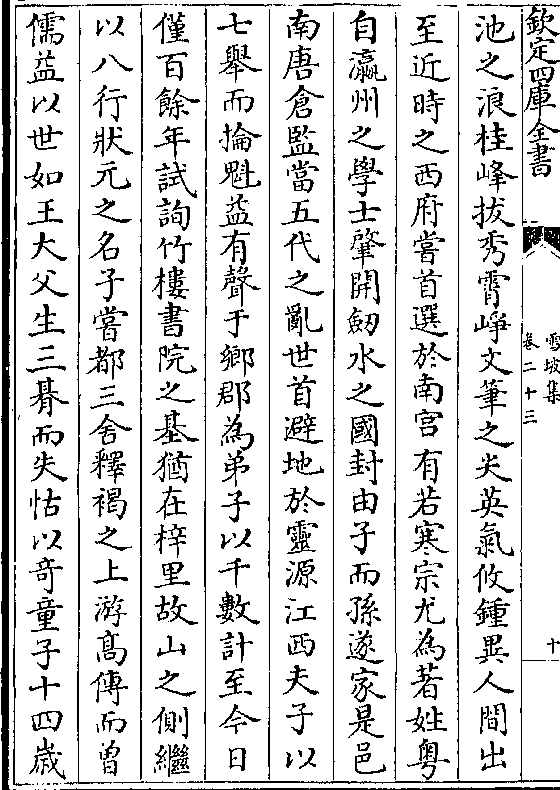 欽定四庫全書
雪坡集
卷二十三
十
池之浪桂峰拔秀霄崢文筆之尖英氣攸鍾異人間出
至近時之西府嘗首選於南宫有若寒宗尤為著姓粤
自瀛州之學士肇開劒水之國封由子而孫遂家是邑
南唐倉監當五代之亂世首避地於靈源江西夫子以
七舉而掄魁益有聲于鄉郡為弟子以千數計至今日
僅百餘年試詢竹樓書院之基猶在梓里故山之側繼
以八行狀元之名子嘗都三舍釋褐之上游髙傳而曾
儒益以世如王大父生三朞而失怙以奇童子十四歳